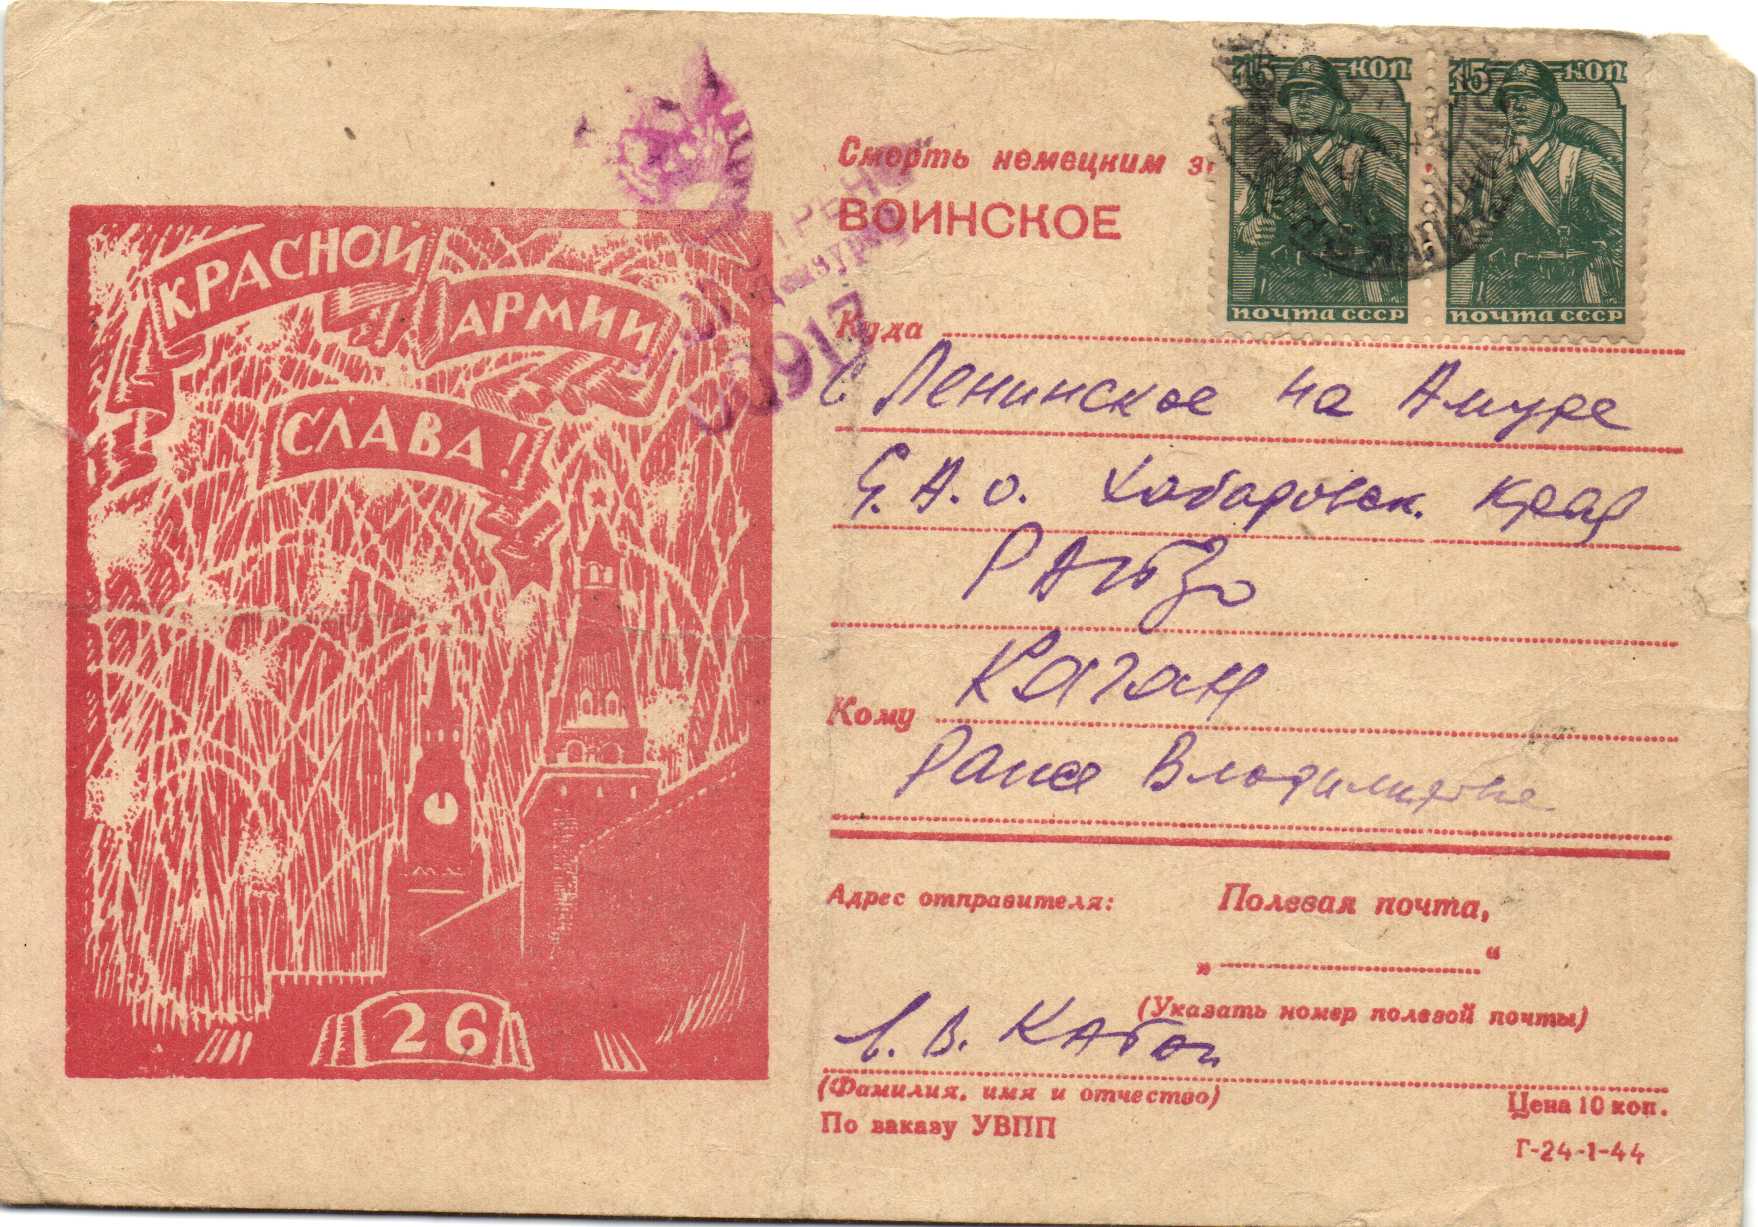 КРАСНОЙ
АРМИИ
СЛАВА!
26
15 КОП
ПОЧТА СССР
15 КОП
ПОЧТА СССР
Смерть немецким
ВОИНСКОЕ
Куда
с. Ленинское на Амуре
Е.А.о. Хабаровск. край
Кому
Каган
Раисе Владимировне
Адрес отправителя:
Полевая почта,
„ “
(Указать номер полевой почты)
В.
(Фамилия, имя и отчество)
По заказу УВПП
Цена 10 коп.
Г-24-1-44